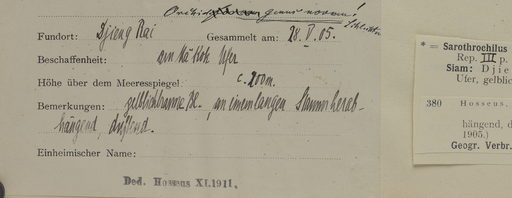 genus novum!
Schlechter
Fundort: Djieng Rai Gesammelt am: 28. V. 05.
Beschaffenheit: Ufer
Höhe über dem Meeresspiegel c. 200m.
Bemerkungen: gelblichbraune Bl., an einem langen Stamm herab-
hängend, duftend.
Einheimischer Name:
Ded. Hosseus XI.1911.
* = Sarothrochilus
Rep. III p.
Siam: Djie
Ufer, gelblic
380 Hosseus,
hängend, d
1905.)
Geogr. Verbr.